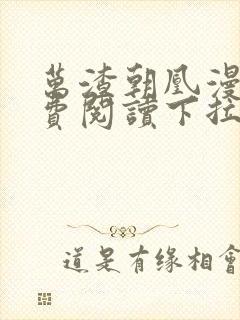 萬渣朝凰漫
費閱讀下拉
道是有缘相會